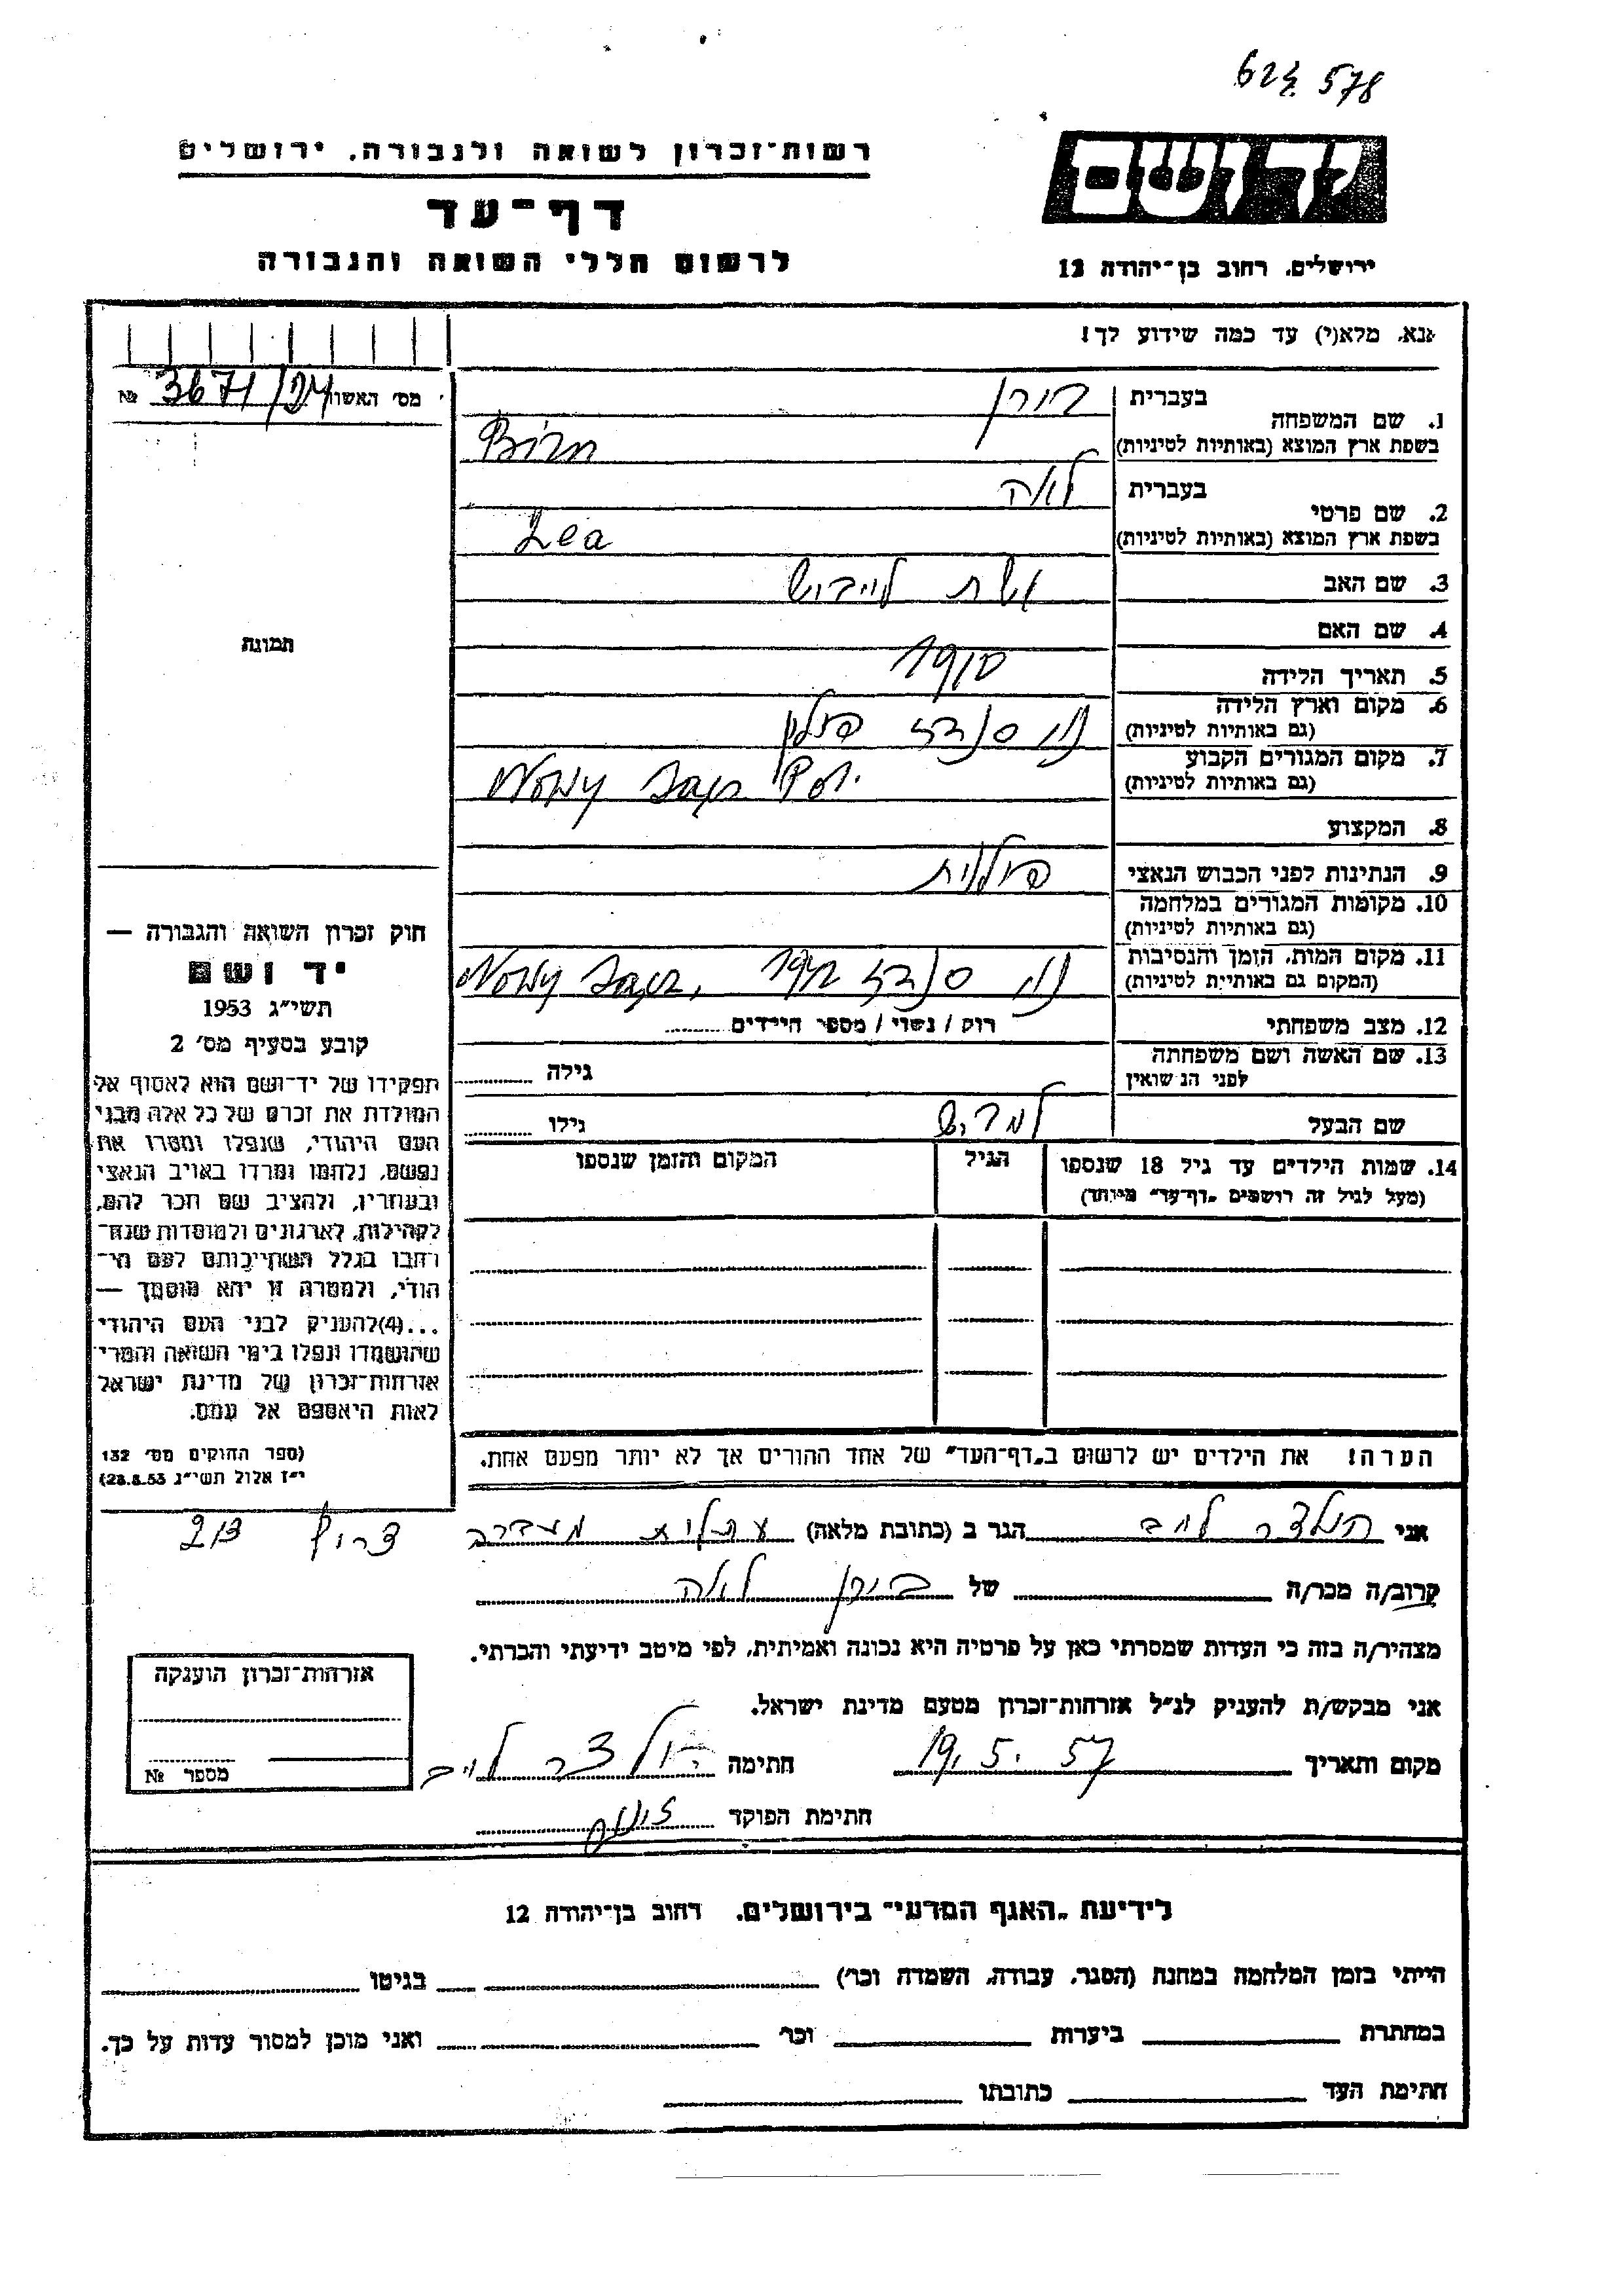 624 578
רשות־זכרון לשואה ולגבורה, ירושלים
דף־עד
לרשום חללי השואה והגבורה
יד ושם
ירושלים, רחוב בן־יהודה 12
אנא, מלא(י) עד כמה שידוע לך!
מס׳ האשור 3671/24 №
1. שם המשפחה
בעברית בירן
בשפת ארץ המוצא (באותיות לטיניות) Birn
2. שם פרטי
בעברית לאה
בשפת ארץ המוצא (באותיות לטיניות) Lea
3. שם האב אשת לייביש
4. שם האם
5. תאריך הלידה 1910
6. מקום וארץ הלידה (גם באותיות לטיניות) נוי סנדז פולין
7. מקום המגורים הקבוע (גם באותיות לטיניות) Nowy Sącz Pol.
8. המקצוע
9. הנתינות לפני הכבוש הנאצי פולנית
10. מקומות המגורים במלחמה (גם באותיות לטיניות)
11. מקום המות, הזמן והנסיבות (המקום גם באותיות לטיניות) נוי סנדז 1942 Nowy Sącz,
12. מצב משפחתי רוק / נשוי / מספר הילדים
13. שם האשה ושם משפחתה לפני הנשואין גילה
שם הבעל גילו
14. שמות הילדים עד גיל 18 שנספו (מעל לגיל זה רושמים „דף־עד״ מיוחד) הגיל המקום והזמן שנספו
תמונה
חוק זכרון השואה והגבורה —
יד ושם
תשי״ג 1953
קובע בסעיף מס׳ 2
תפקידו של יד־ושם הוא לאסוף אל
המולדת את זכרם של כל אלה מבני
העם היהודי, שנפלו ומסרו את
נפשם, נלחמו ומרדו באויב הנאצי
ובעוזריו, ולהציב שם וזכר להם,
לקהילות, לארגונים ולמוסדות שנח־
רבו בגלל השתייכותם לעם הי־
הודי, ולמטרה זו יהא מוסמך —
...(4)להעניק לבני העם היהודי
שהושמדו ונפלו בימי השואה והמרי
אזרחות־זכרון של מדינת ישראל
לאות היאספם אל עמם.
(ספר החוקים מס׳ 132
י״ז אלול תשי״ג 28.8.53)
הערה! את הילדים יש לרשום ב„דף־העד״ של אחד ההורים אך לא יותר מפעם אחת.
אני הולצר לייב הגר ב (כתובת מלאה) עתלית מעברה צריף 213
קרוב/ה מכר/ה של בירן לאה
מצהיר/ה בזה כי העדות שמסרתי כאן על פרטיה היא נכונה ואמיתית, לפי מיטב ידיעתי והכרתי.
אני מבקש/ת להעניק לנ״ל אזרחות־זכרון מטעם מדינת ישראל.
מקום ותאריך 19. 5. 57 חתימה הולצר לייב
חתימת הפוקד
אזרחות־זכרון הוענקה
מספר №
לידיעת „האגף המדעי״ בירושלים, רחוב בן־יהודה 12
הייתי בזמן המלחמה במחנה (הסגר, עבודה, השמדה וכו׳) בגיטו
במחתרת ביערות וכו׳ ואני מוכן למסור עדות על כך.
חתימת העד כתובתו